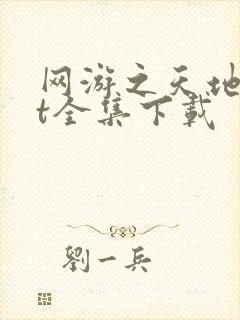 网游之天地
t全集下载
劉一兵